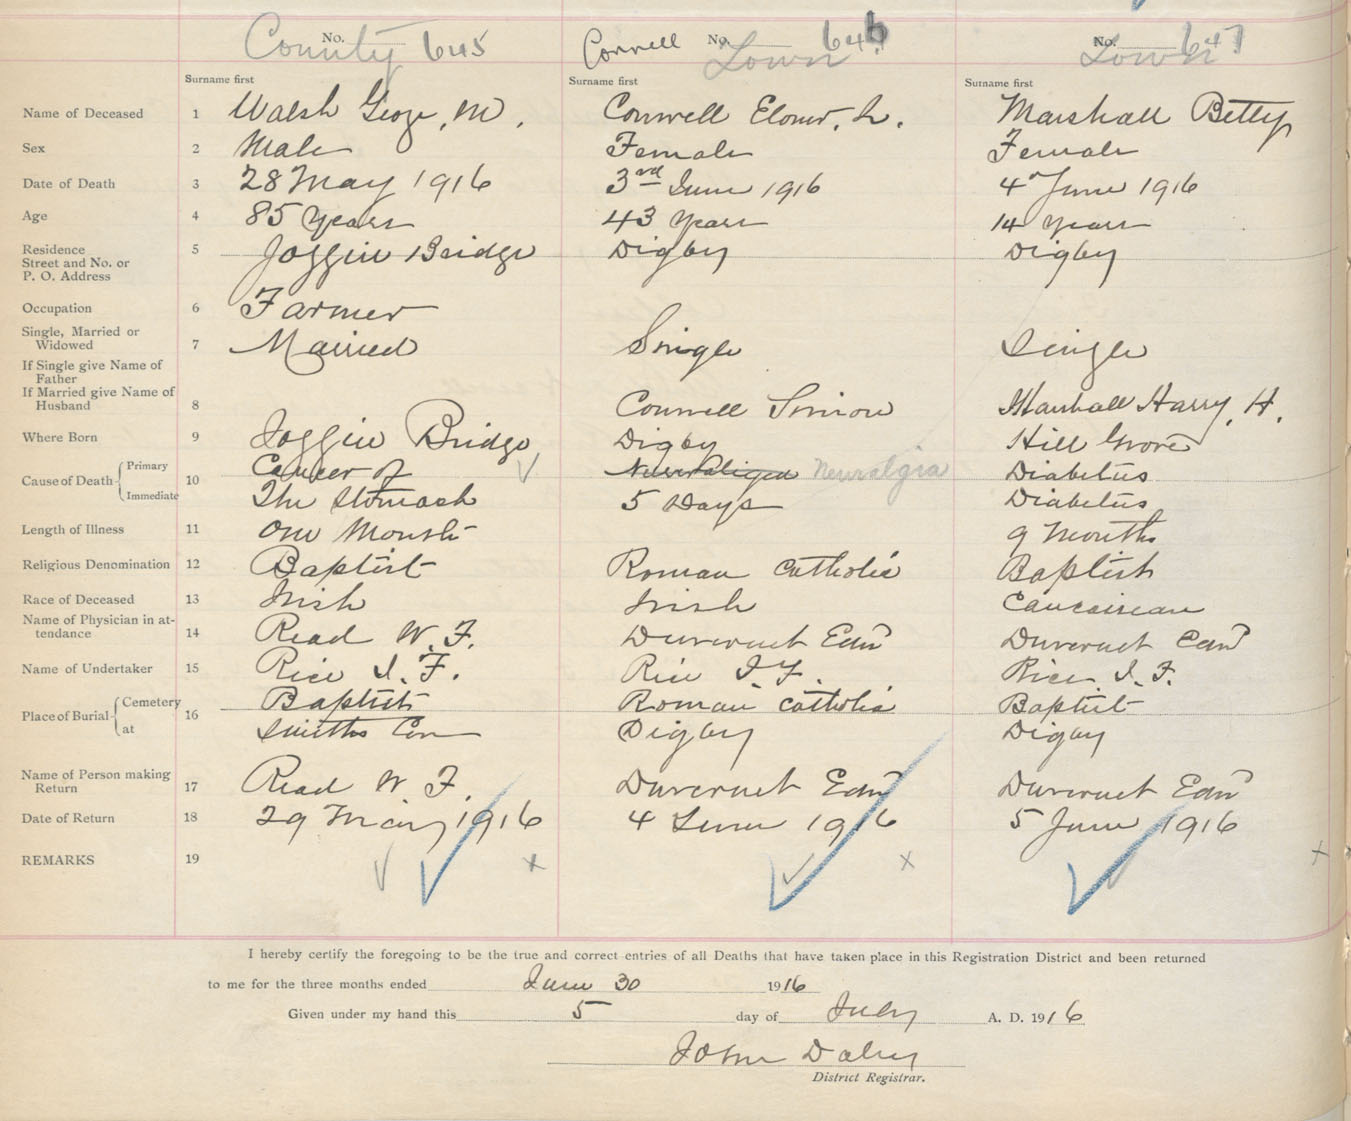 County No. 645 Connell No. Town 646 No. Town 647
Surname first Surname first Surname first
Name of Deceased 1 Walsh George, M. Connell Elonor, L. Marshall Betty
Sex 2 Male Female Female
Date of Death 3 28 May 1916 3rd June 1916 4" June 1916
Age 4 85 Years 43 Years 14 Years
Residence Street and No. or P. O. Address 5 Joggin Bridge Digby Digby
Occupation 6 Farmer
Single, Married or Widowed 7 Married Single Single
If Single give Name of Father
If Married give Name of Husband 8 Connell Simon Marshall Harry, H.
Where Born 9 Joggin Bridge Digby Hill Grove
Cause of Death Primary 10 Cancer of Neuralgia Diabetus
Immediate The Stomach 5 Days Diabetus
Length of Illness 11 One Month 9 Months
Religious Denomination 12 Baptist Roman Catholic Baptist
Race of Deceased 13 Irish Irish Caucaisean
Name of Physician in attendance 14 Read W. F. Duvernet Edw Duvernet Edw
Name of Undertaker 15 Rice I. F. Rice I. F. Rice I. F.
Place of Burial Cemetery 16 Baptist Roman Catholic Baptist
at Smiths Cove Digby Digby
Name of Person making Return 17 Read W F. Duvernet Edw Duvernet Edw
Date of Return 18 29 May 1916 4 June 1916 5 June 1916
REMARKS 19
I hereby certify the foregoing to be the true and correct entries of all Deaths that have taken place in this Registration District and been returned
to me for the three months ended June 30 1916
Given under my hand this 5 day of July A. D. 1916
John Daley
District Registrar.